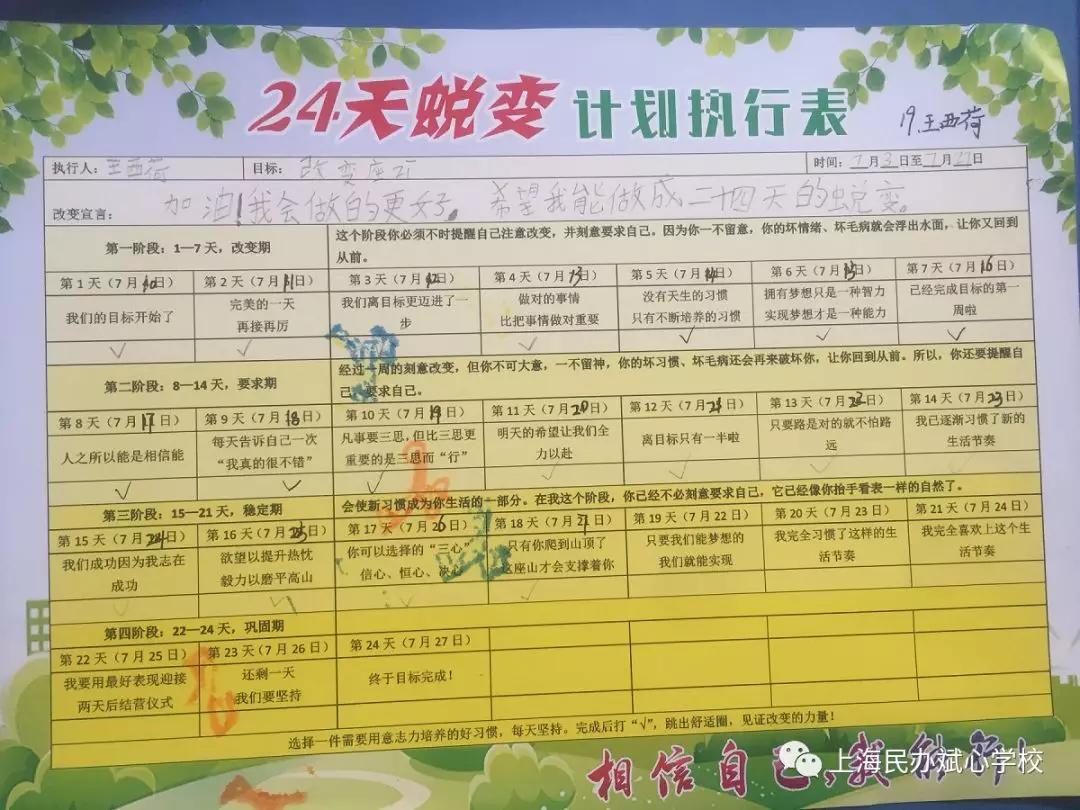 24天蜕变 计划执行表
19.王西荷
执行人：王西荷 目标：改变座 时间：7月3日至7月27日
改变宣言：加油！我会做的更好。希望我能做成二十四天的蜕变。
第一阶段：1—7天，改变期
这个阶段你必须不时提醒自己注意改变，并刻意要求自己。因为你一不留意，你的坏情绪、坏毛病就会浮出水面，让你又回到
从前。
第1天（7月10日） 第2天（7月11日） 第3天（7月12日） 第4天（7月13日） 第5天（7月14日） 第6天（7月15日） 第7天（7月16日）
我们的目标开始了
完美的一天
再接再厉
我们离目标更迈进了一
步
做对的事情
比把事情做对重要
没有天生的习惯
只有不断培养的习惯
拥有梦想只是一种智力
实现梦想才是一种能力
已经完成目标的第一
周啦
√ √ √ √ √ √
第二阶段：8—14天，要求期
经过一周的刻意改变，但你不可大意，一不留神，你的坏习惯、坏毛病还会再来破坏你，让你回到从前。所以，你还要提醒自
己，要求自己。
第8天（7月17日） 第9天（7月18日） 第10天（7月19日） 第11天（7月20日） 第12天（7月21日） 第13天（7月22日） 第14天（7月23日）
人之所以能是相信能
每天告诉自己一次
“我真的很不错”
凡事要三思，但比三思更
重要的是三思而“行”
明天的希望让我们全
力以赴
离目标只有一半啦
只要路是对的就不怕路
远
我已逐渐习惯了新的
生活节奏
√ √ √ √ √ √ √
第三阶段：15—21天，稳定期
会使新习惯成为你生活的一部分。在我这个阶段，你已经不必刻意要求自己，它已经像你抬手看表一样的自然了。
第15天（7月24日） 第16天（7月25日） 第17天（7月26日） 第18天（7月21日） 第19天（7月22日） 第20天（7月23日） 第21天（7月24日）
我们成功因为我志在
成功
欲望以提升热忱
毅力以磨平高山
你可以选择的“三心”
信心、恒心、决心
只有你爬到山顶了
这座山才会支撑着你
只要我们能梦想的
我们就能实现
我完全习惯了这样的生
活节奏
我完全喜欢上这个生
活节奏
√ √ √ √
第四阶段：22—24天，巩固期
第22天（7月25日） 第23天（7月26日） 第24天（7月27日）
我要用最好表现迎接
两天后结营仪式
还剩一天
我们要坚持
终于目标完成！
选择一件需要用意志力培养的好习惯，每天坚持。完成后打“√”，跳出舒适圈，见证改变的力量！
相信自己，我能行！
上海民办斌心学校